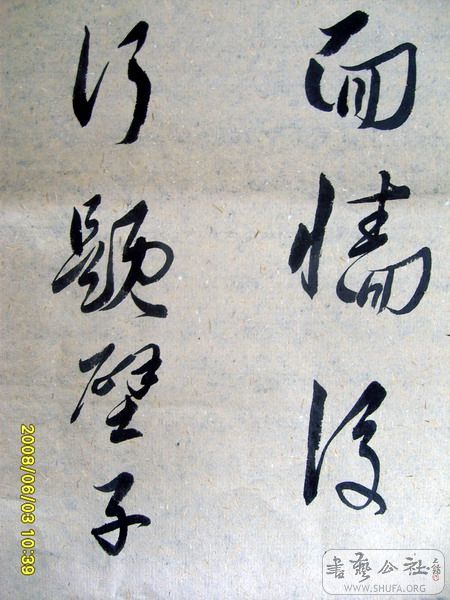 面墻後
行題壁子
2008/06/03 10:39
書藝公社
WWW.SHUFA.ORG